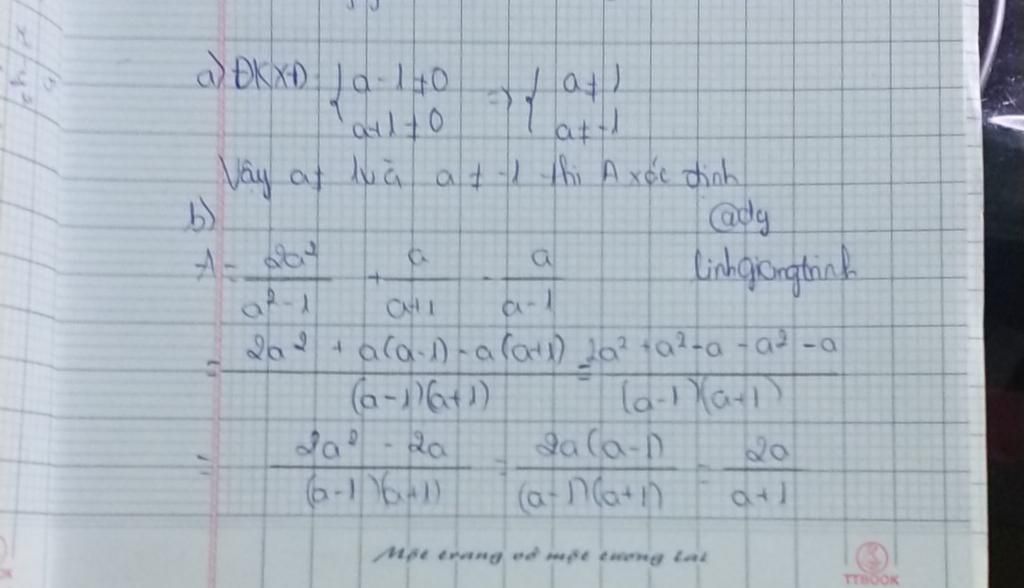 a) ĐKXĐ { a-1≠0 => { a≠1
a+1≠0 a≠-1
Vậy a≠ 1 và a ≠ -1 thì A xác định
b) @dy
A = 2a²/(a²-1) + a/(a+1) - a/(a-1) linhgiangtrinh
= (2a² + a(a-1) - a(a+1))/((a-1)(a+1)) = (2a² + a² - a - a² - a)/((a-1)(a+1))
= (2a² - 2a)/((a-1)(a+1)) = 2a(a-1)/((a-1)(a+1)) = 2a/(a+1)
Một trang vở một tương lai
TTBOOK